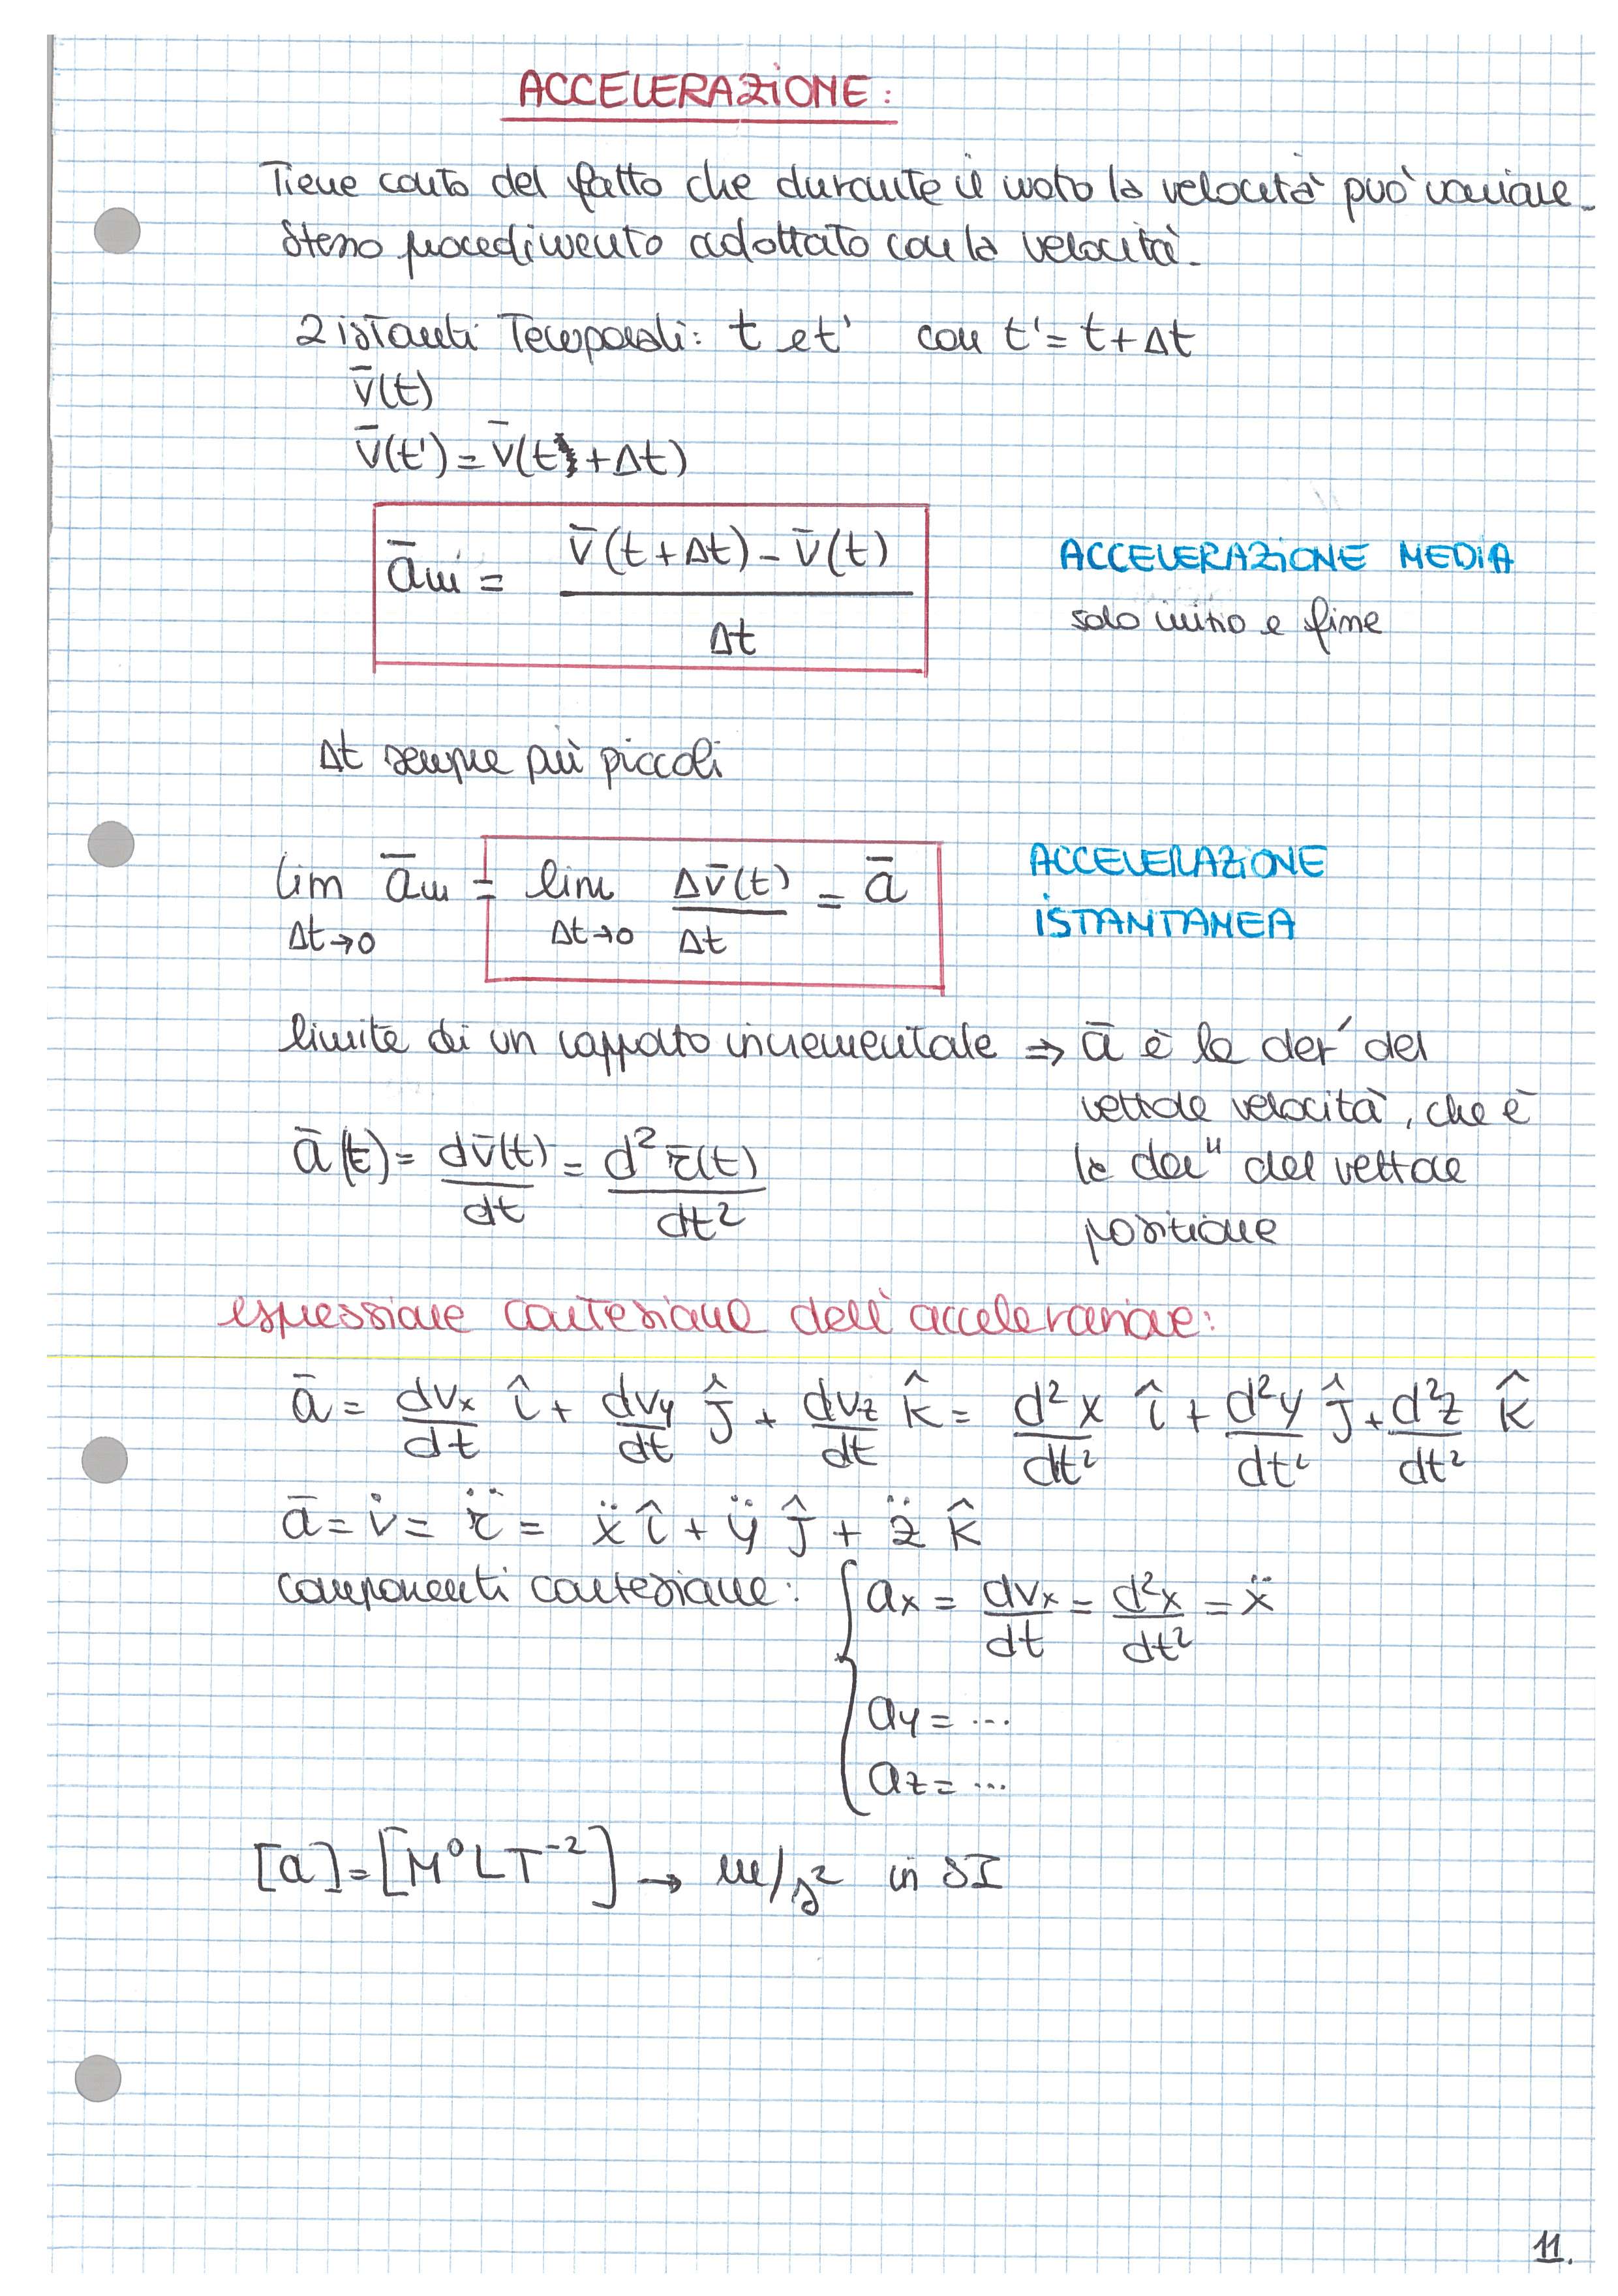 ACCELERAZIONE:
Tiene conto del fatto che durante il moto la velocità può variare.
Stesso procedimento adottato con la velocità.
2 istanti temporali: t e t' con t' = t + Δt
v̄(t)
v̄(t') = v̄(t + Δt)
ām = v̄(t + Δt) - v̄(t) / Δt
ACCELERAZIONE MEDIA
solo inizio e fine
Δt sempre più piccoli
lim Δt→0 ām = lim Δt→0 Δv̄(t)/Δt = ā
ACCELERAZIONE
ISTANTANEA
limite di un rapporto incrementale ⇒ ā è la der' del
vettore velocità, che è
la der'' del vettore
posizione
ā(t) = dv̄(t)/dt = d²r̄(t)/dt²
espressione cartesiana dell'accelerazione:
ā = dvx/dt î + dvy/dt ĵ + dvz/dt k̂ = d²x/dt² î + d²y/dt² ĵ + d²z/dt² k̂
ā = v̇ = r̈ = ẍ î + ÿ ĵ + z̈ k̂
componenti cartesiane: { ax = dvx/dt = d²x/dt² = ẍ
ay = ...
az = ...
[a] = [M⁰LT⁻²] → m/s² in SI
11.